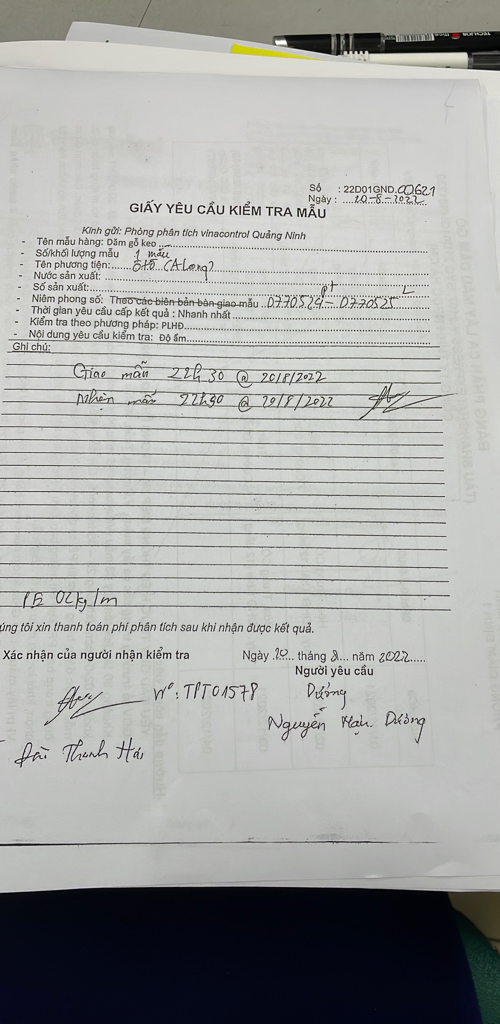 Số : 22D01GND.00621
Ngày : ....20-8-2022
GIẤY YÊU CẦU KIỂM TRA MẪU
Kính gửi: Phòng phân tích vinacontrol Quảng Ninh
- Tên mẫu hàng: Dăm gỗ keo
- Số/khối lượng mẫu 1 mẫu
- Tên phương tiện: ôtô (A Long)
- Nước sản xuất:
- Số sản xuất:
- Niêm phong số: Theo các biên bản bàn giao mẫu 0770524 - 0770525
- Thời gian yêu cầu cấp kết quả : Nhanh nhất
- Kiểm tra theo phương pháp: PLHĐ
- Nội dung yêu cầu kiểm tra: Độ ẩm
Ghi chú:
Giao mẫu 22h30 @ 20/8/2022
Nhận mẫu 22h30 @ 20/8/2022
PE 02kg/m
úng tôi xin thanh toán phí phân tích sau khi nhận được kết quả.
Xác nhận của người nhận kiểm tra
Ngày 20... tháng 8... năm 2022.....
Người yêu cầu
Nº: TPT01578
Dương
Nguyễn Dương
Thanh